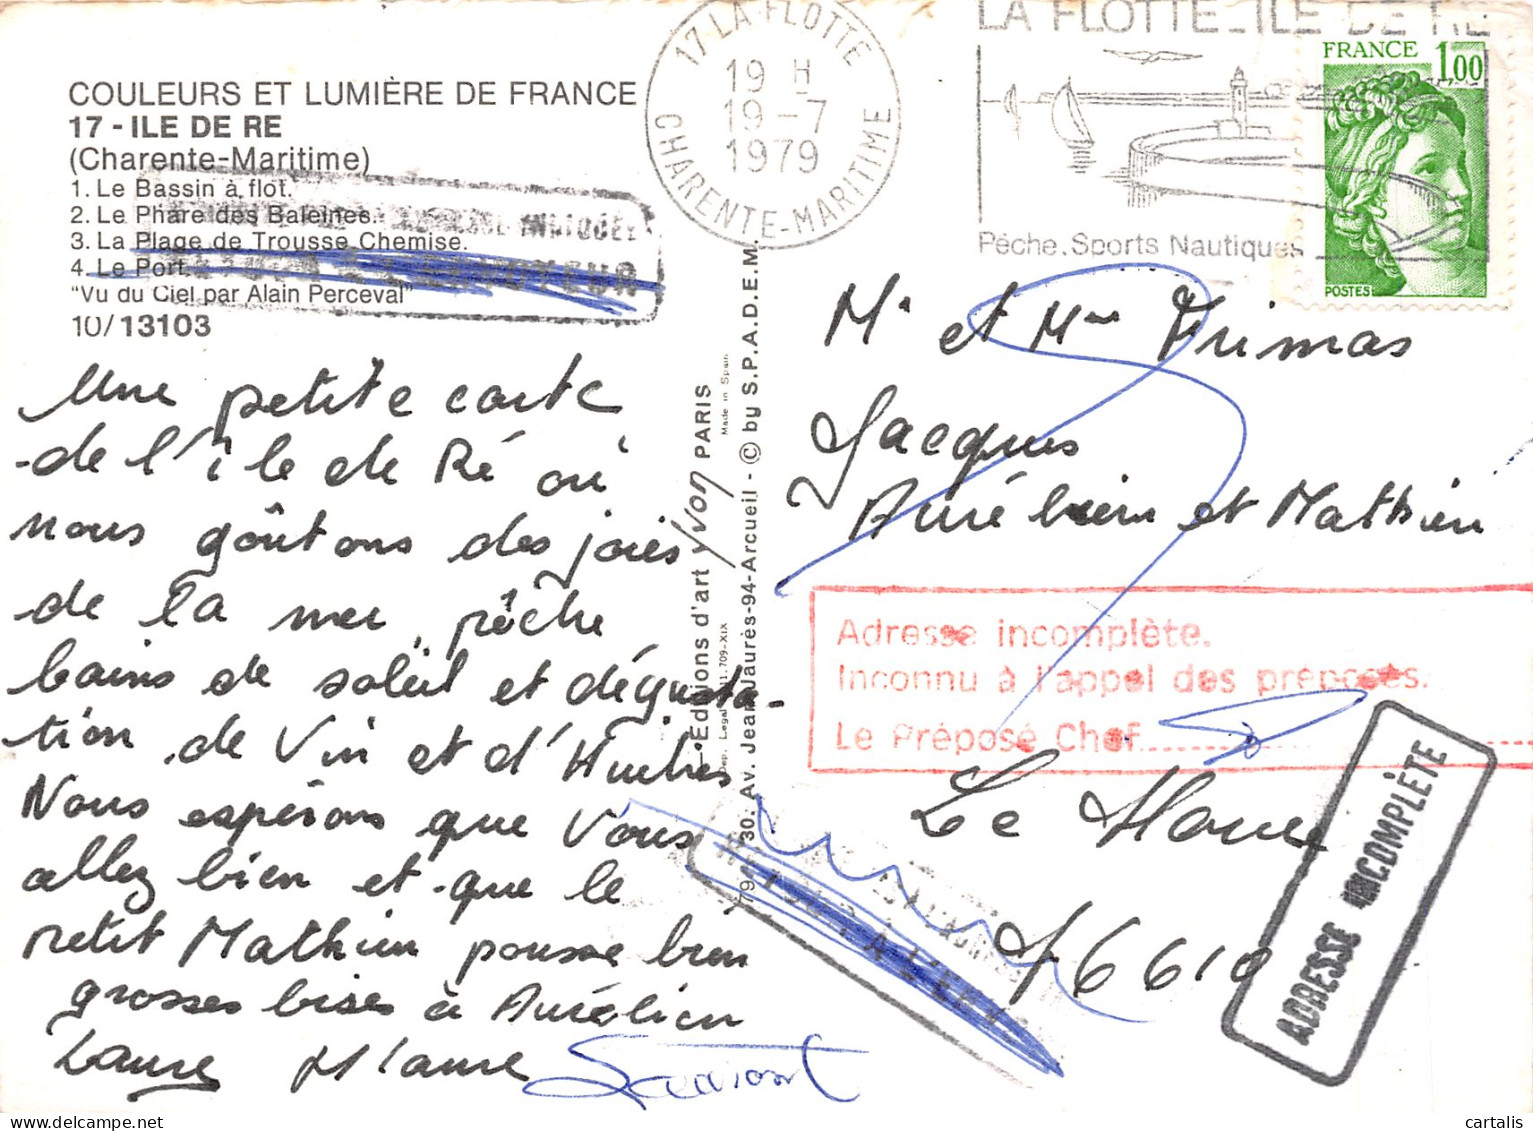 COULEURS ET LUMIÈRE DE FRANCE
17 - ILE DE RE
(Charente-Maritime)
1. Le Bassin à flot.
2. Le Phare des Baleines.
3. La Plage de Trousse Chemise.
4. Le Port.
"Vu du Ciel par Alain Perceval"
10/13103
INDIQUÉE
Une petite carte
de l'île de Ré où
nous goûtons des joies
de la mer, pêche
bains de soleil et dégusta-
tion de Vin et d'Huitres
Nous espérons que Vous
allez bien et que le
petit Mathieu pousse bien
grosses bises à Aurélien
Laure
79 - Editions d'art yvon PARIS
Made in Spain
30. Av. Jean Jaurès-94-Arcueil - © by S.P.A.D.E.M.
17 LA FLOTTE
19 H
19-7
1979
CHARENTE-MARITIME
LA FLOTTE_ILE DE RE
Pêche. Sports Nautiques
FRANCE 1,00
POSTES
Mr et Mme Frimas
Jacques
Aurélien et Mathieu
Adresse incomplète.
Inconnu à l'appel des préposés.
Le Préposé Chef
RETOUR À L'ENVOYEUR
Le Houre
76610
ADRESSE INCOMPLÈTE
cartalis.com